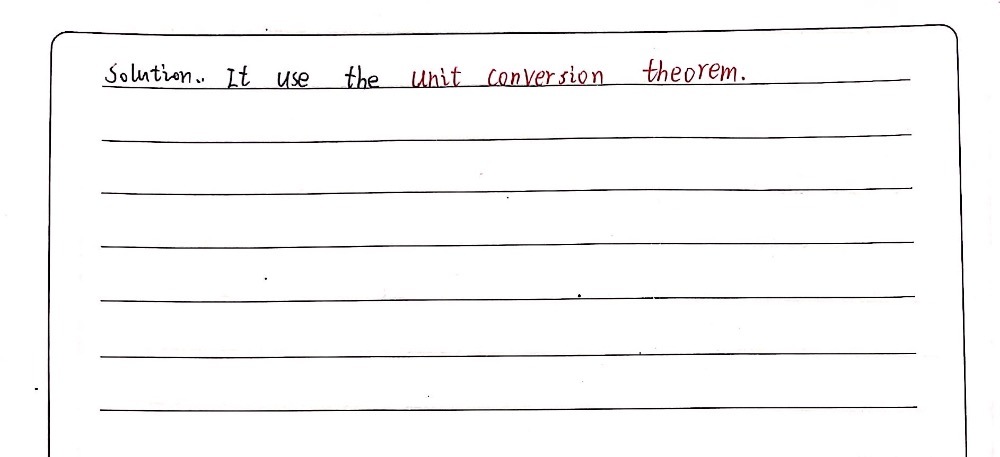 Solution.. It use the unit conversion theorem.